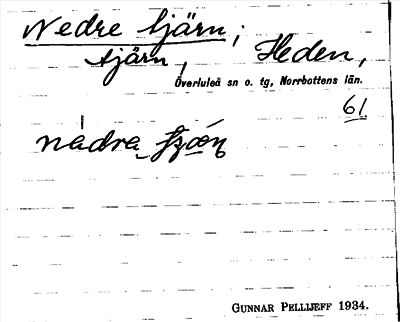 Nedre tjärn;
tjärn, Heden,
Överluleå sn o. tg, Norrbottens län.
61
nädra
GUNNAR PELLIJEFF 1934.